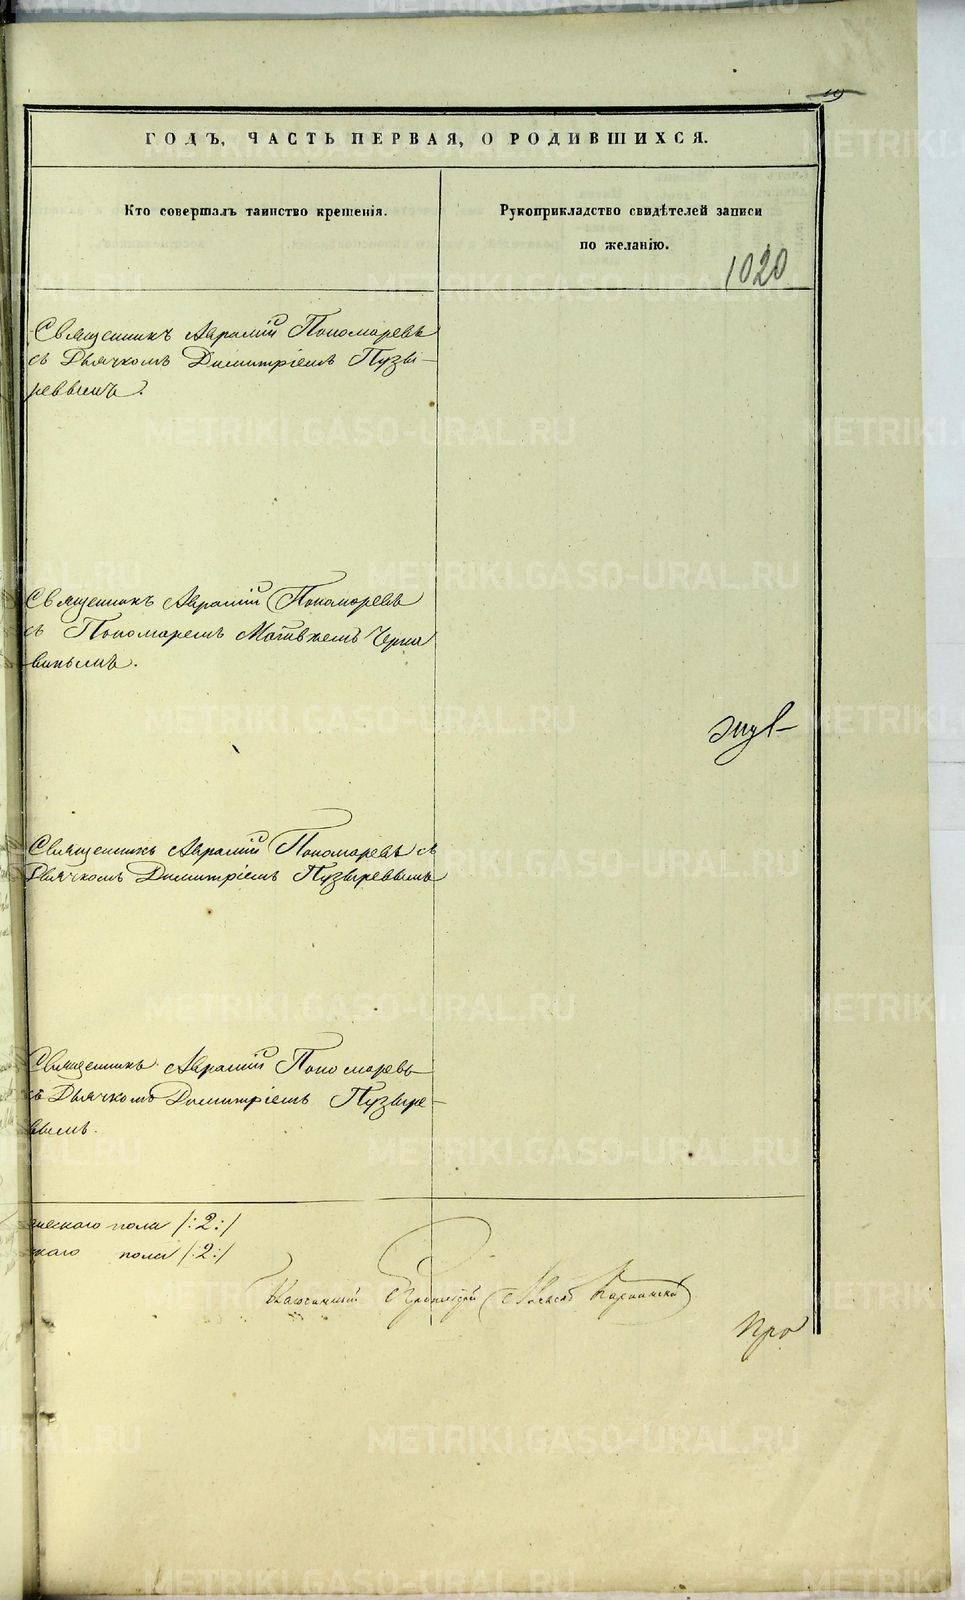 19
ГОДЪ, ЧАСТЬ ПЕРВАЯ, О РОДИВШИХСЯ.
Кто совершалъ таинство крещенія.
Рукоприкладство свидѣтелей записи
по желанію.
1020
Священникъ Аврамій Пономаревъ
съ Дьячкомъ Димитріемъ Пузы-
ревымъ.
Священникъ Аврамій Пономаревъ
съ Пономаремъ Матвѣемъ Черна
винымъ.
Священникъ Аврамій Пономаревъ съ
Дьячкомъ Димитріемъ Пузыревымъ
Священникъ Аврамій Пономаревъ
съ Дьячкомъ Димитріемъ Пузыре-
вымъ.
ческаго пола /:2:/
скаго пола /:2:/
METRIKI.GASO-URAL.RU